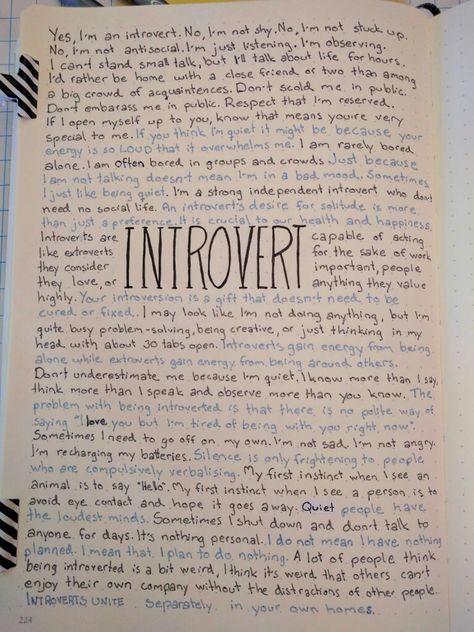 Yes, I'm an introvert. No, I'm not shy. No, I'm not stuck up.
No, I'm not antisocial. I'm just listening. I'm observing.
I can't stand small talk, but I'll talk about life for hours.
I'd rather be home with a close friend or two than among
a big crowd of acquaintences. Don't scold me in public.
Don't embarass me in public. Respect that I'm reserved.
If I open myself up to you, know that means you're very
special to me. If you think I'm quiet it might be because your
energy is so LOUD that it overwhelms me. I am rarely bored
alone. I am often bored in groups and crowds Just because
I am not talking doesn't mean I'm in a bad mood. Sometimes
I just like being quiet. I'm a strong independent introvert who don't
need no social life. An introvert's desire for solitude is more
than just a preference. It is crucial to our health and happiness.
Introverts are capable of acting
like extroverts for the sake of work
they consider INTROVERT important, people
they love, or anything they value
highly. Your introversion is a gift that doesn't need to be
cured or fixed. I may look like I'm not doing anything, but I'm
quite busy problem-solving, being creative, or just thinking in my
head with about 30 tabs open. Introverts gain energy from being
alone while extroverts gain energy from being around others.
Don't underestimate me because I'm quiet. I know more than I say,
think more than I speak and observe more than you know. The
problem with being introverted is that there is no polite way of
saying "I love you but I'm tired of being with you right now".
Sometimes I need to go off on my own. I'm not sad. I'm not angry.
I'm recharging my batteries. Silence is only frightening to people
who are compulsively verbalising. My first instinct when I see an
animal is to say "Hello". My first instinct when I see a person is to
avoid eye contact and hope it goes away. Quiet people have
the loudest minds. Sometimes I shut down and don't talk to
anyone for days. It's nothing personal. I do not mean I have nothing
planned. I mean that I plan to do nothing. A lot of people think
being introverted is a bit weird, I think it's weird that others can't
enjoy their own company without the distractions of other people.
INTROVERTS UNITE separately in your own homes.
224